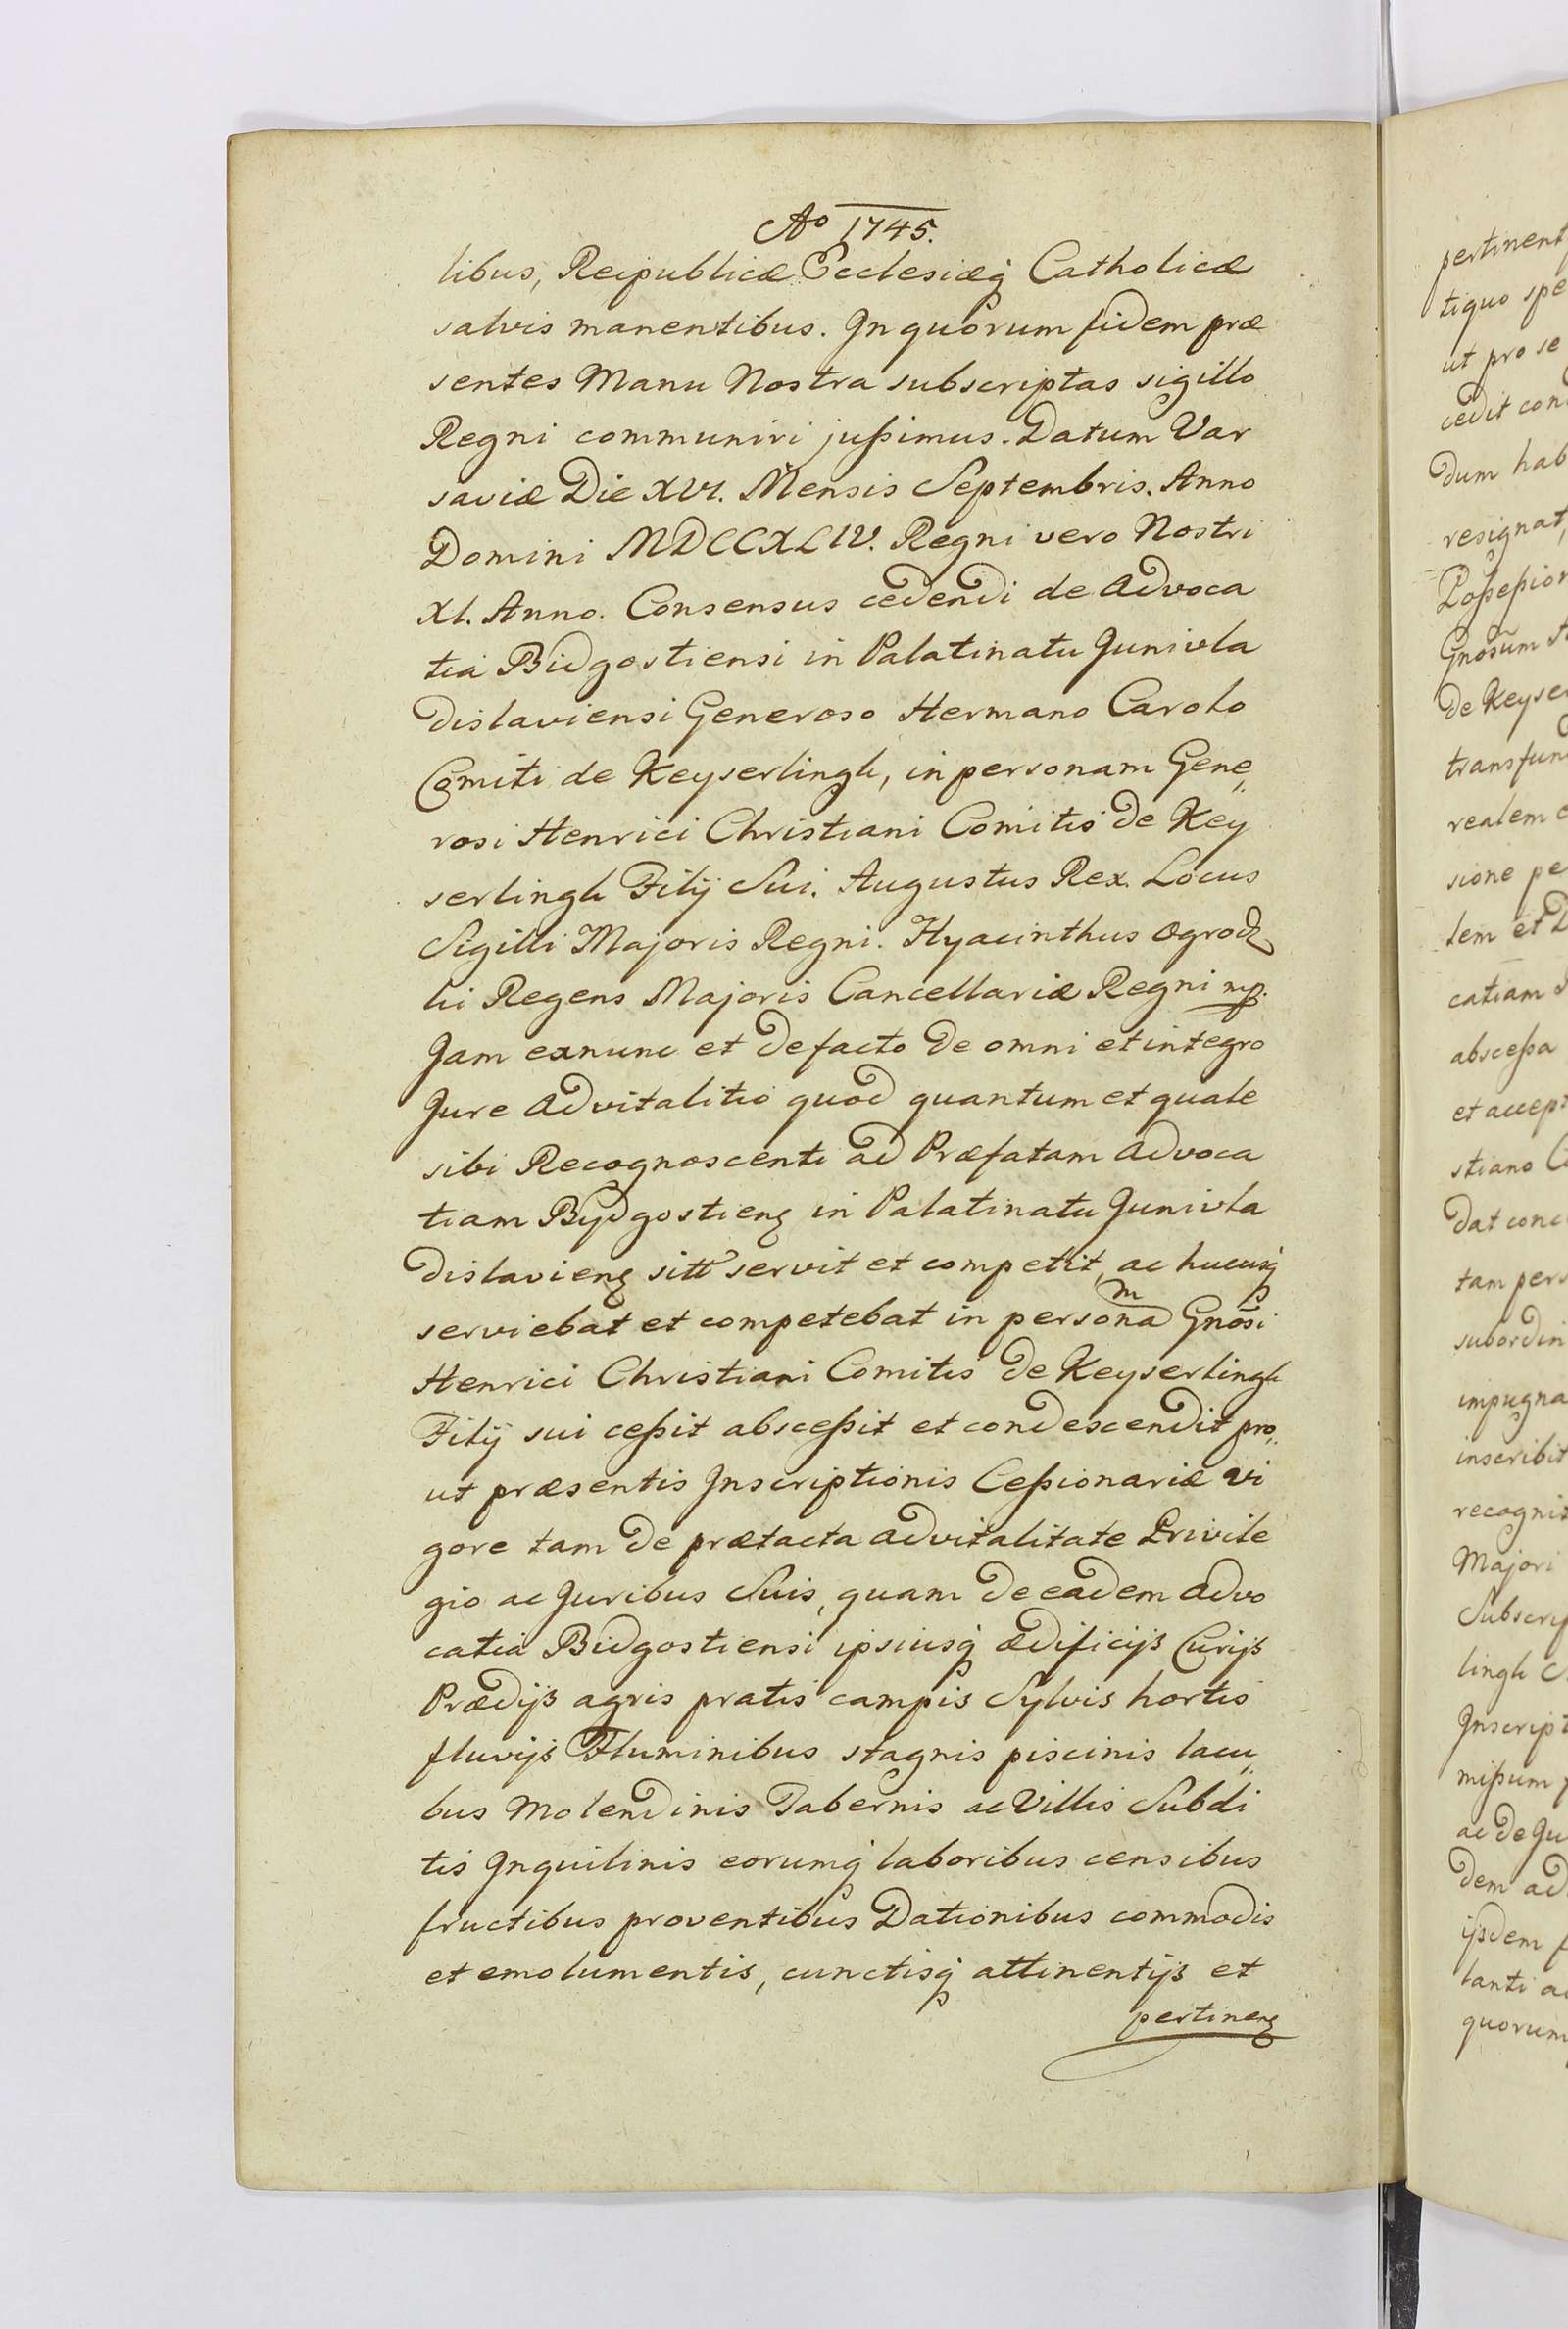 Ao 1745.
libus, Reipublicæ Ecclesiæq́ Catholicæ
salvis manentibus. In quorum fidem præ
sentes Manu Nostra subscriptas sigillo
Regni communiri jußimus. Datum Var
saviæ Die XVI. Mensis Septembris. Anno
Domini MDCCXLIV. Regni vero Nostri
XI. Anno. Consensus cedendi de Advoca
tia Bidgostiensi in Palatinatu Junivla
dislaviensi Generoso Hermano Carolo
Comiti de Keyserlingk, in personam Gene„
rosi Henrici Christiani Comitis de Key
serlingk Filij Sui. Augustus Rex. Locus
Sigilli Majoris Regni. Hyacinthus Ogrodz
ki Regens Majoris Cancellariæ Regni mp.
Jam exnunc et defacto de omni et integro
Jure Advitalitio quod quantum et quale
sibi Recognoscenti ad Præfatam Advoca
tiam Bydgostienȝ in Palatinatu Junivla
dislavienȝ sitt servit et competit, ac hucusq́
serviebat et competebat in personam Gnõsi
Henrici Christiani Comitis de Keyserlingk
Filij sui ceßit absceßit et condescendit pro„
ut præsentis Inscriptionis Ceßionariæ vi
gore tam de prætacta advitalitate Privile
gio ac Juribus Suis, quam de eadem Advo
catia Bidgostiensi ipsiusq́ ædificijs Curijs
Prædijs agris pratis campis Sylvis hortis
fluvijs Fluminibus stagnis piscinis lacu„
bus Molendinis Tabernis ac Villis Subdi
tis Inquilinis eorumq́ laboribus censibus
fructibus proventibus Dationibus commodis
et emolumentis, cunctisq́ attinentijs et
pertinenȝ
pertinent
tiquo spe
ut pro se
cedit con
dum hab
resignat,
Poßeßion
Gnõsum
de Keyser
transfun
realem
sione pe
lem et D
catiam
absceßa
et accept
stiano
dat conc
tam pers
subordin
impugna
inscribit
recognit
Majori
Subscrip
lingk
Inscript
mißum
ac de Ju
dem ad
ijsdem
lanti ac
quorum